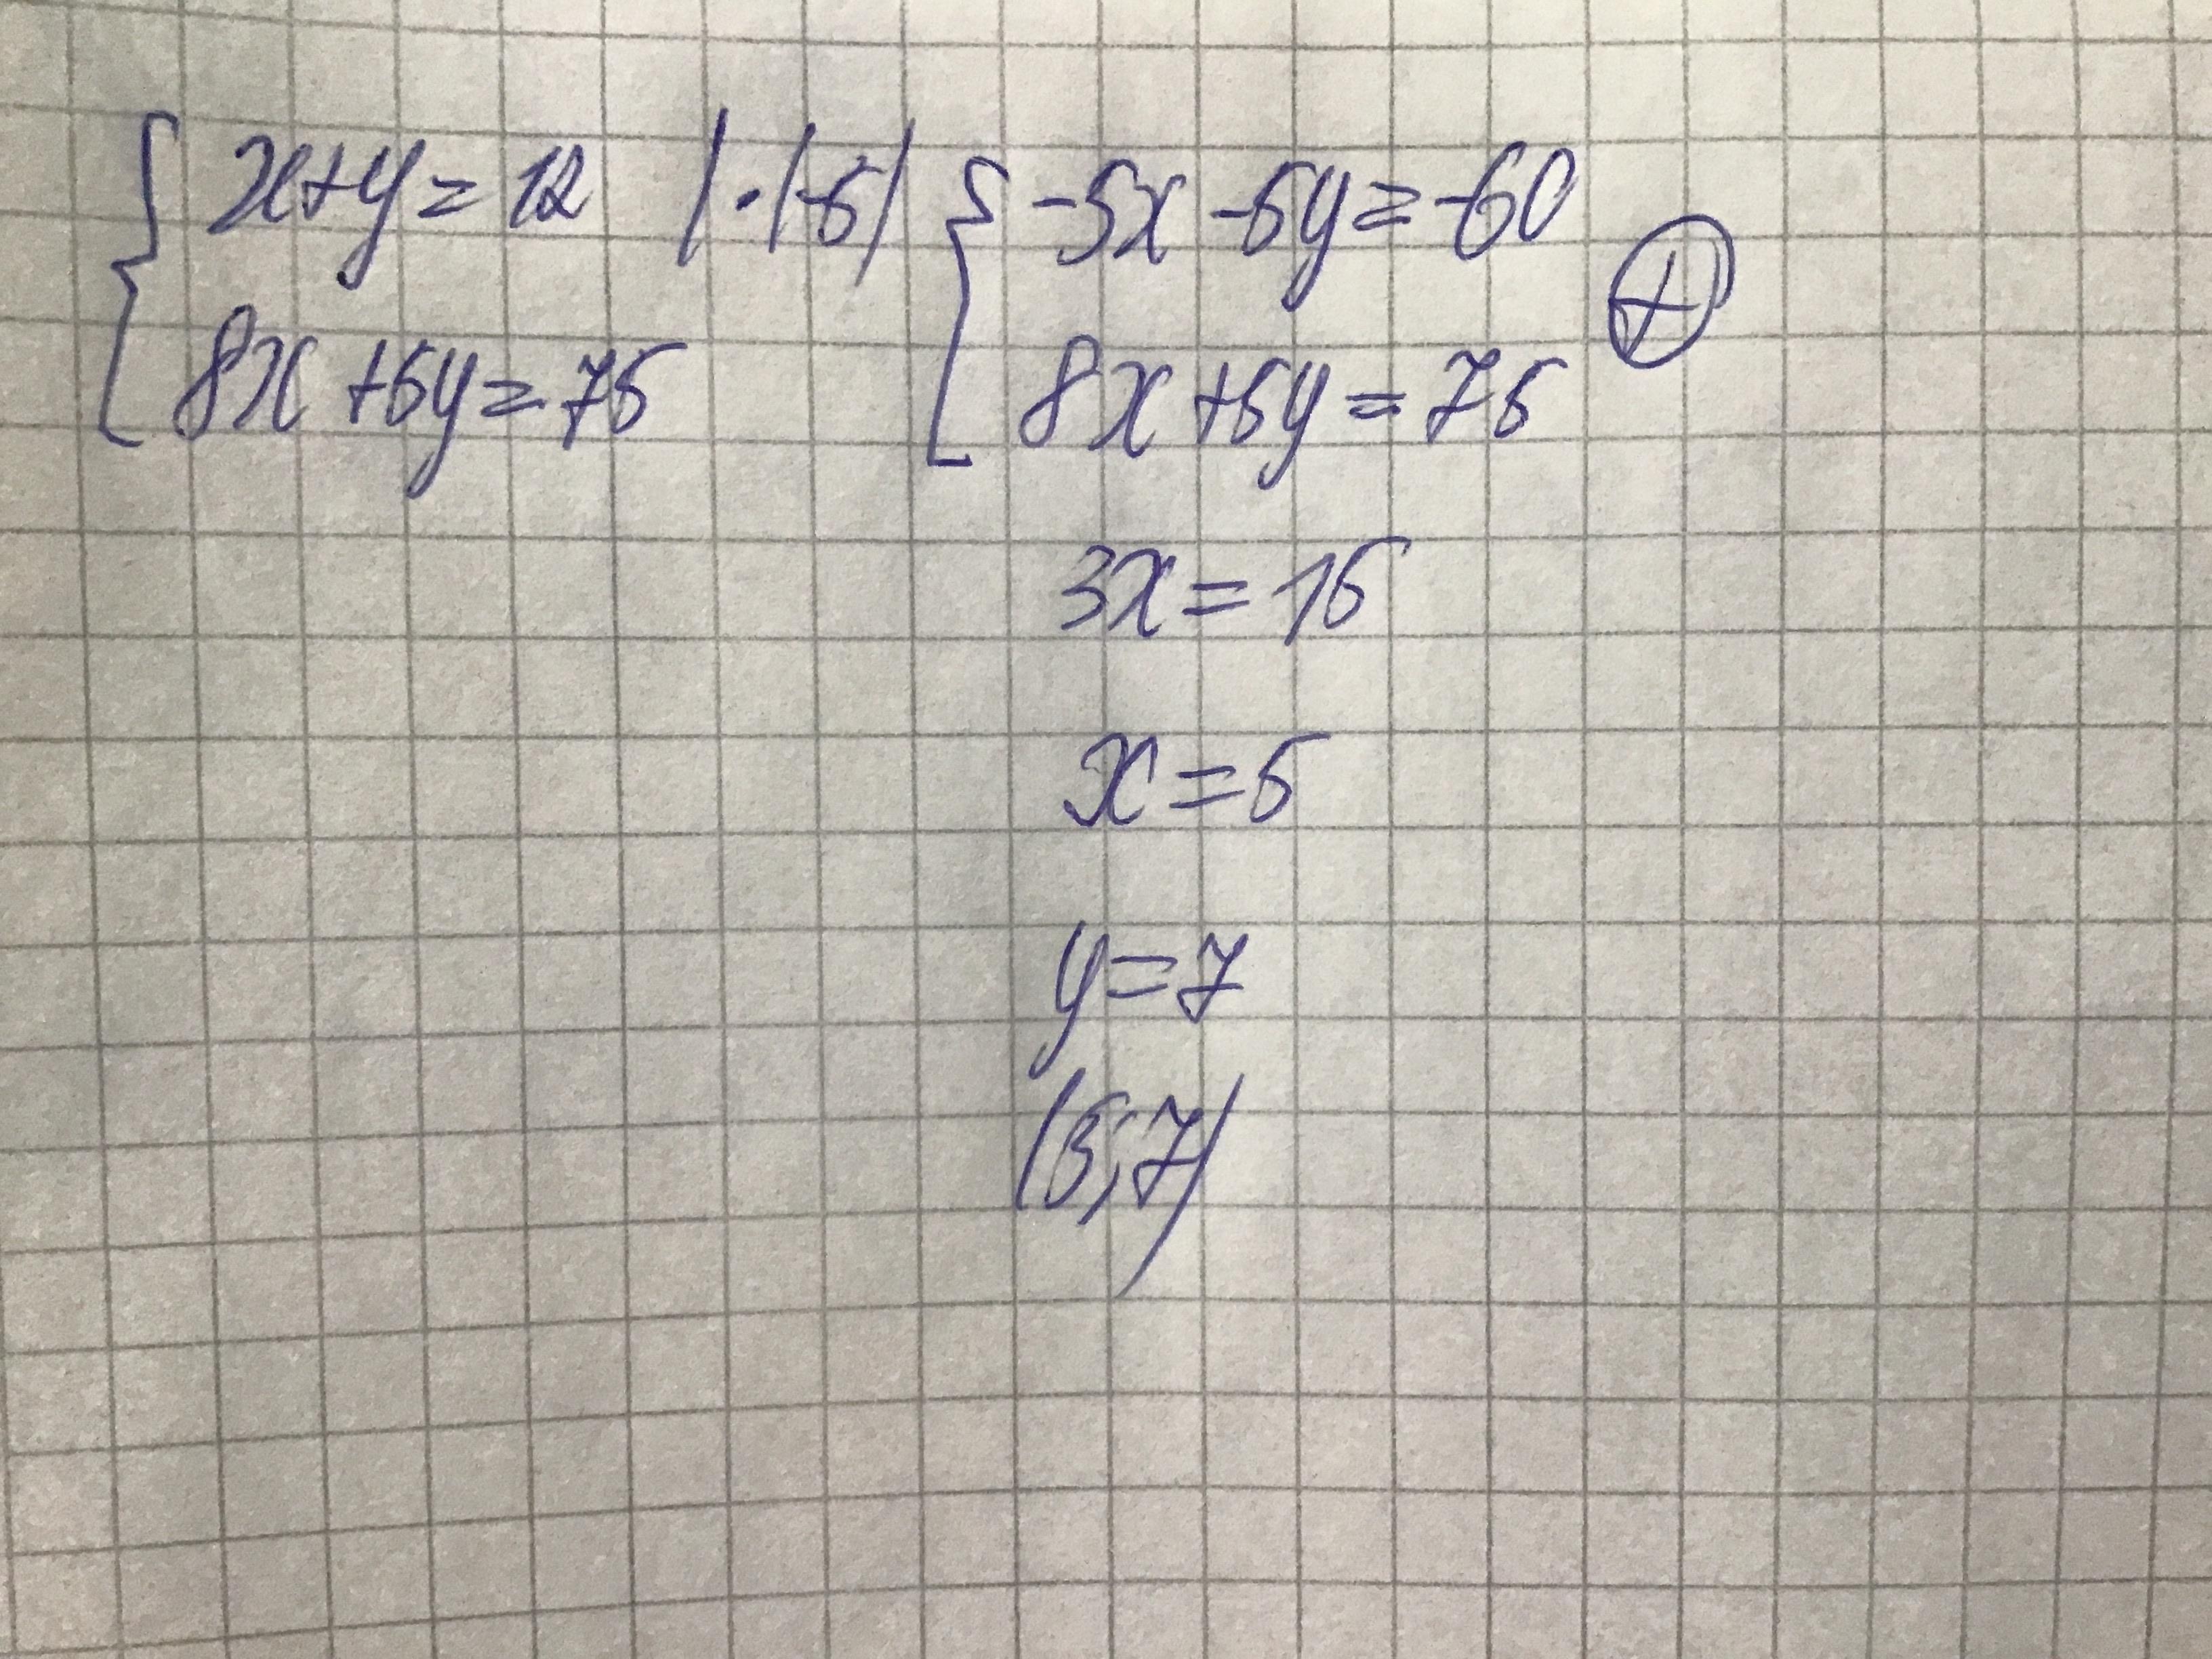 { x+y=12 |·(-5) { -5x-5y=-60
8x+5y=75 8x+5y=75 ⊕
3x=15
x=5
y=7
(5;7)